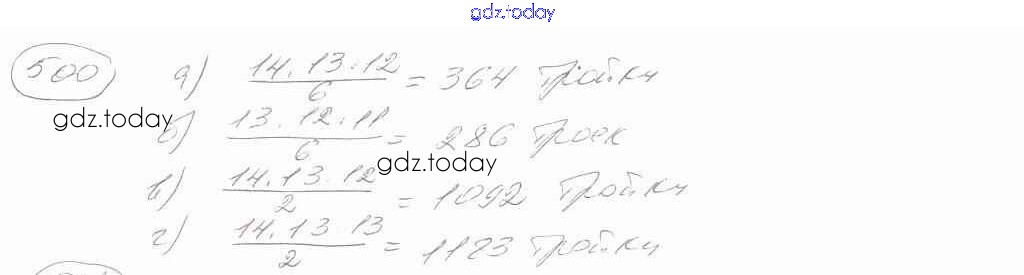 gdz.today
500 а) 14.13.12 / 6 = 364 тройки
gdz.today
б) 13.12.11 / 6 = 286 троек
gdz.today
в) 14.13.12 / 2 = 1092 тройки
г) 14.13.13 / 2 = 1183 тройки